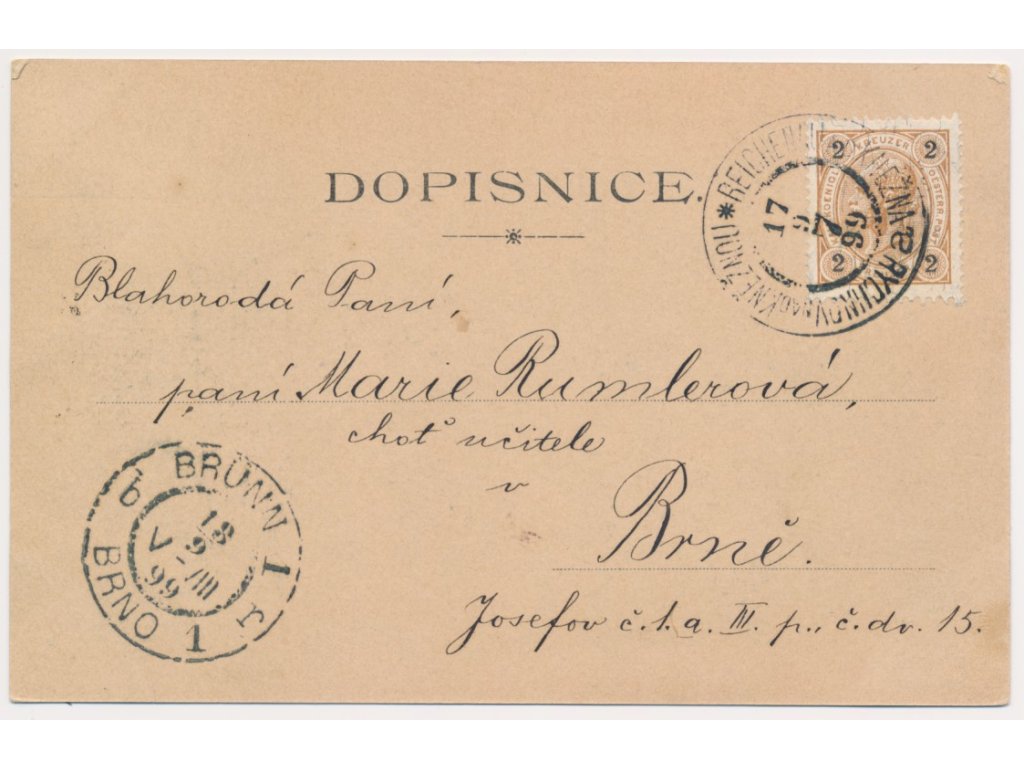 DOPISNICE.
2 KREUZER 2
OESTERR. POST
2 2
RYCHNOV NAD KNĚŽNOU * REICHENAU
KNĚŽNA
17
99
Blahorodá Paní,
paní Marie Rumlerová,
choť učitele
v
Brně.
Josefov č. 1. a. III. p., č. dv. 15.
BRÜNN 1
BRNO 1
b
18
9
99